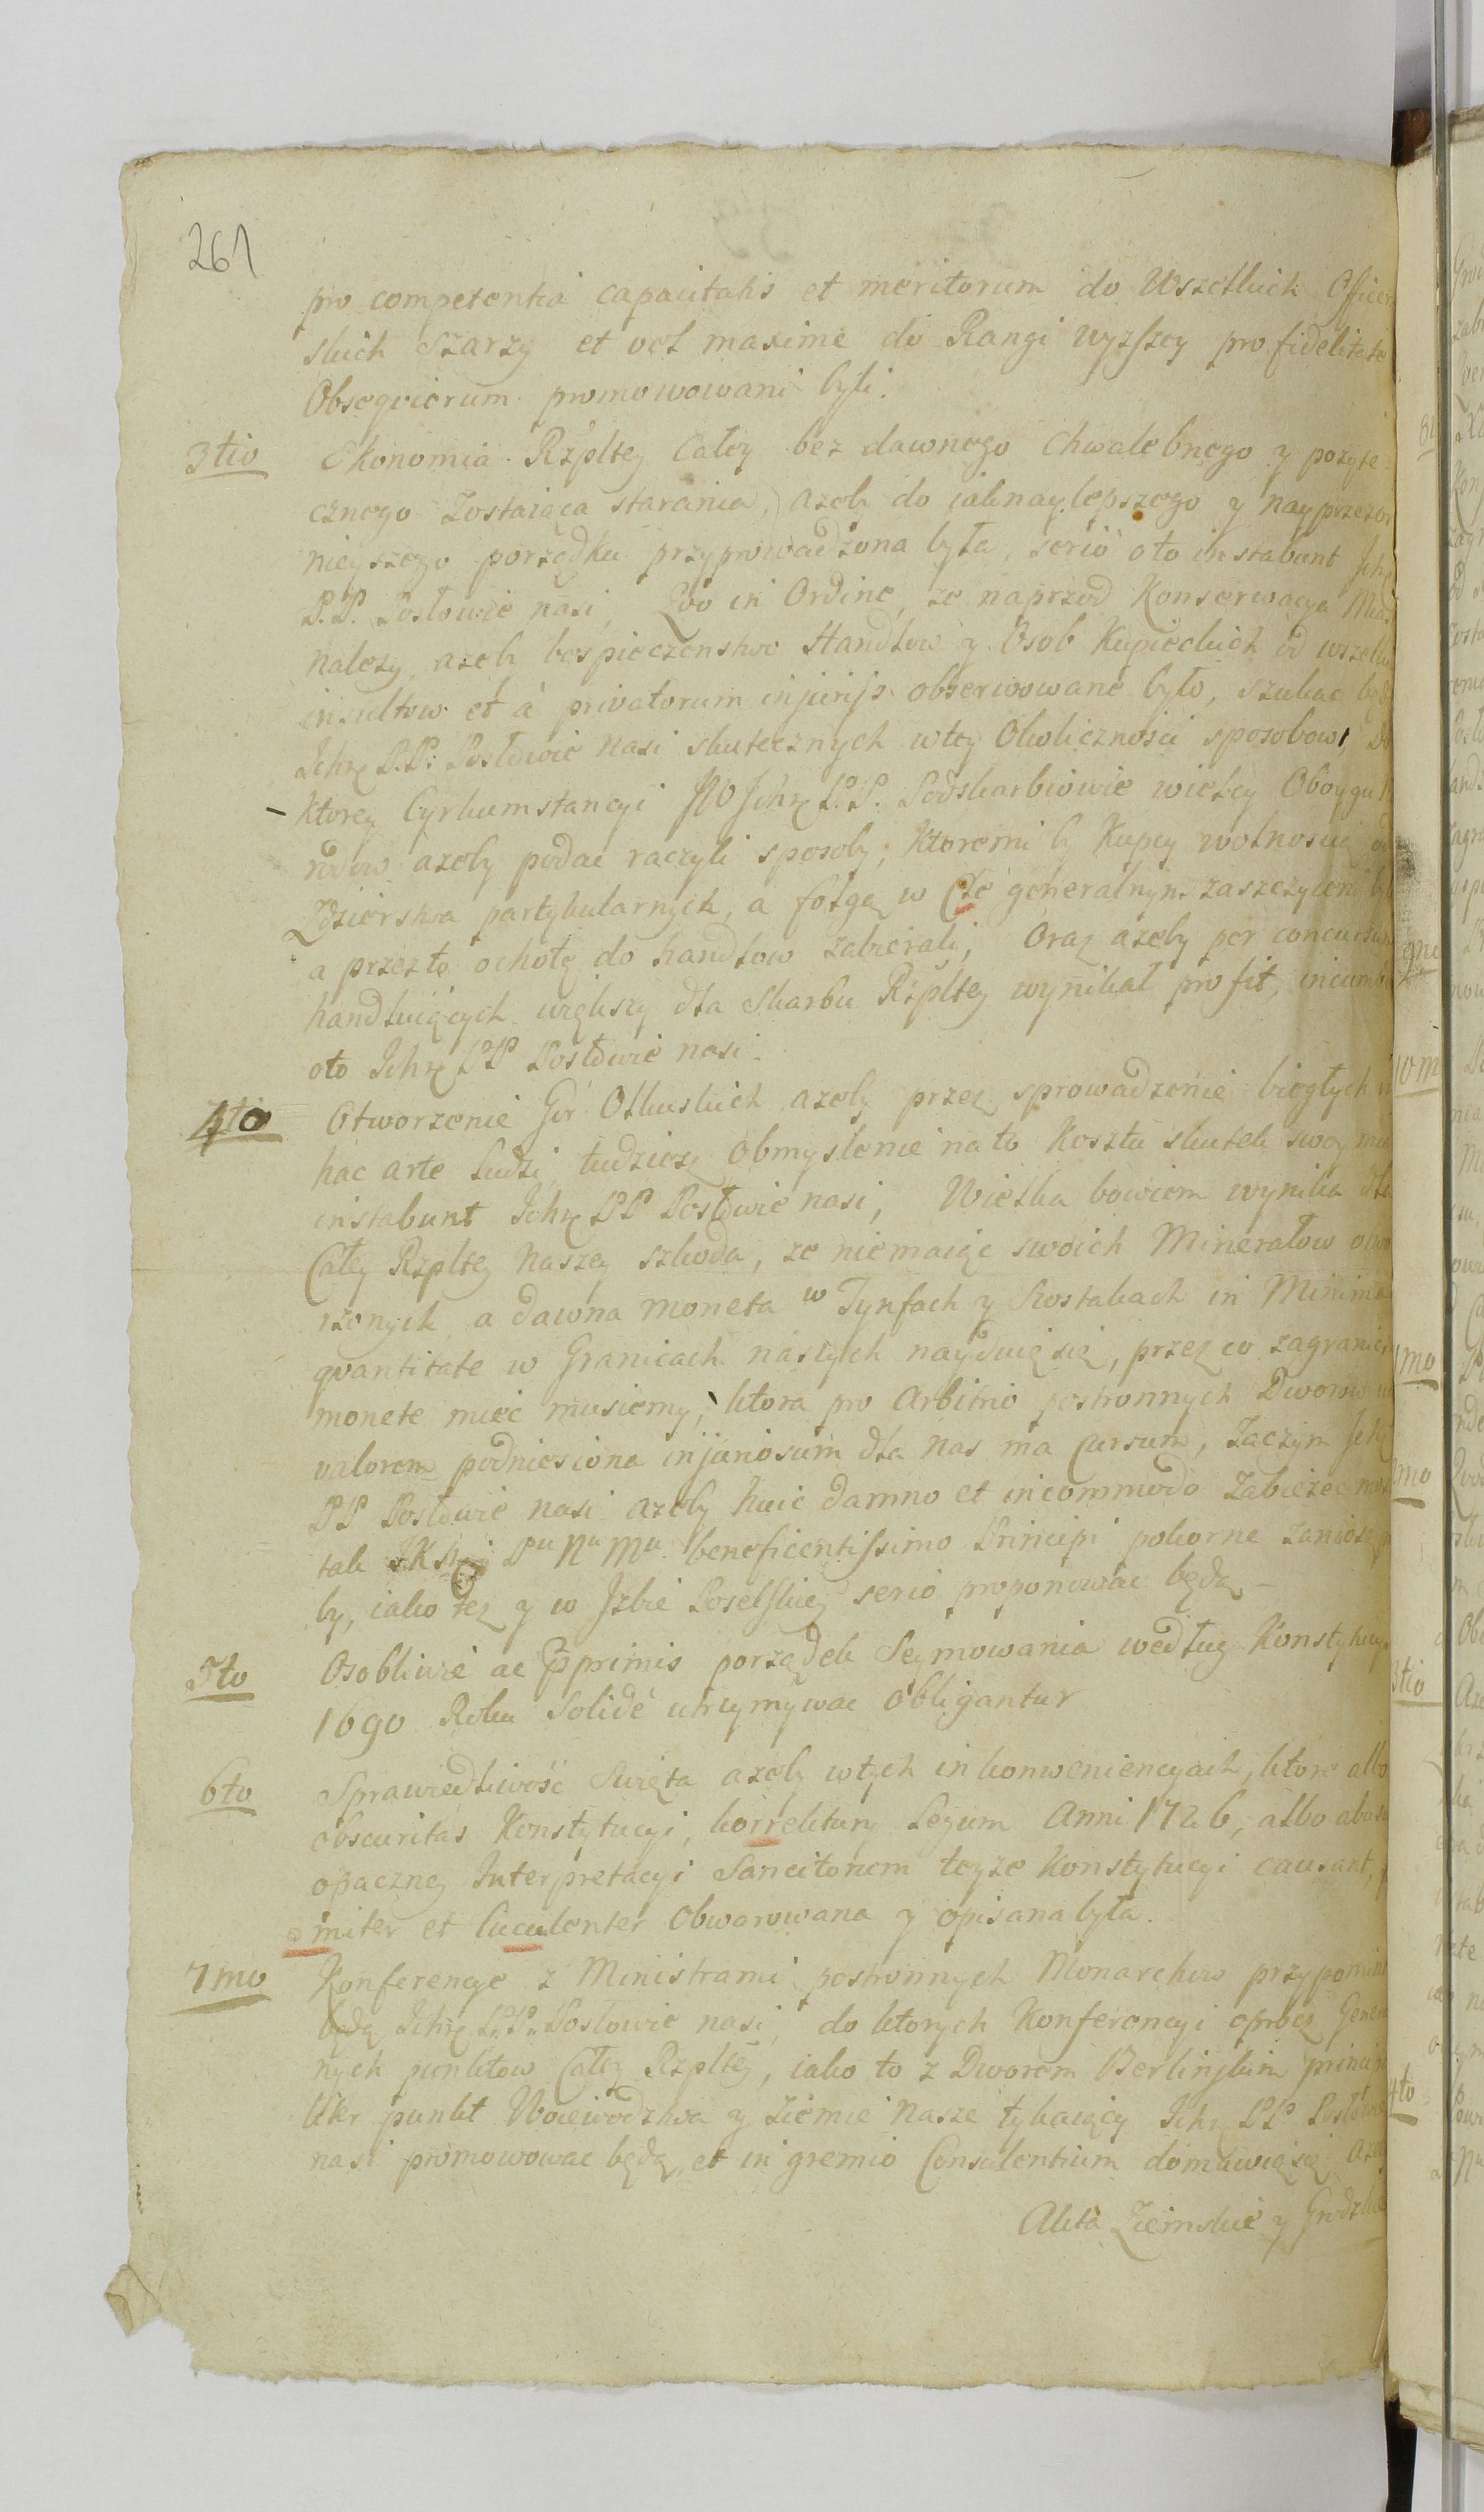 261
pro competentia capacitatis et meritorum do Wszelkich Officer
skich Szarzy et vel maxime do Rangi wyzszey pro fidelitate
Obseqviorum promowowani byli.
3tio Ekonomia Rzpltey całey bez dawnego chwalebnego y pozyte
cznego Zostaiąca starania, azeby do iaknaylepszego y nayprzezor
nieyszego porządku przyprowadzona była, serio oto instabunt Ichę
P.P. Posłowie nasi, Qvo in Ordine, ze naprzod Konserwacya Miast
nalezy, azeby bespieczenstwo Handlow y Osob Kupieckich od wszelkich
insultow et à privatorum injurijs obserwowane było, szukac będą
Ichę P.P. Posłowie nasi skutecznych w tey Okolicznosci sposobow, Do
ktorey Cyrkumstancyi JW Ichę P.P. Podskarbiowie wielcy Oboygu Na
rodow azeby podac raczyli sposoby, ktoremi by Kupcy wolnosci od
Zdzierstwa partykularnych, a folgą w Cle generalnym zaszczyceni byli
a przezto ochotę do handlow zabierali, Oraz azeby per concursum
handluiących większy dla Skarbu Rzpltey wynikał profit, incumbent
oto Ichę PP Posłowie nasi.
4to Otworzenie Gor Olkuskich azeby przez sprowadzenie biegłych in
hac arte Ludzi, tudziesz Obmyslenie na to Kosztu skutek swoy miało
instabunt Ichę PP Posłowie nasi, Wielka bowiem wynika dla
Całey Rzpltey Naszey szkoda, ze niemaiąc swoich Minerałow otwo
rzonych, a dawna moneta w Tynfach y Szostakach in Minima
qvantitate w Granicach naszych nayduię się, przez co zagraniczną
monete miec musiemy, ktora pro Arbitrio postronnych Dworow in
valorem podniesiona injuriosum dla nas ma Cursum, Zaczym Ichę
PP Posłowie nasi azeby huic damno et incommodo Zabiezec mogli
tak JKMci Pu Nu Mu beneficentissimo Principi pokorne zaniosą proz
by, iako tez y w Izbie Poselskiey serio proponowac będą
5to Osobliwie ac Jprimis porządek Seymowania według Konstytucyi
1690 Roku Solidé utrzymywac obligantur
6to Sprawiedliwość Swięta azeby w tych inkonweniencyach, ktore albo
obscuritas Konstytucyi, korrektury Legum Anni 1726, albo abusus
opaczney Interpretacyi Sancitorum teyze Konstytucyi causant, fir
miter et luculenter Obwarowana y opisana była.
7mo Konferencye z Ministrami postronnych Monarchow przypominac
będą Ichę P.P. Posłowie nasi, do ktorych Konferencyi oprocz General
nych punktow Całey Rzpltey, iako to z Dworem Berlinskim principa
liter punkt Woiewodztwa y Ziemie Nasze tykaiący Ichę PP Posłowie
nasi promowowac będą, et in gremio Consulentium domawię się, aze
Akta Ziemskie y Grodzkie